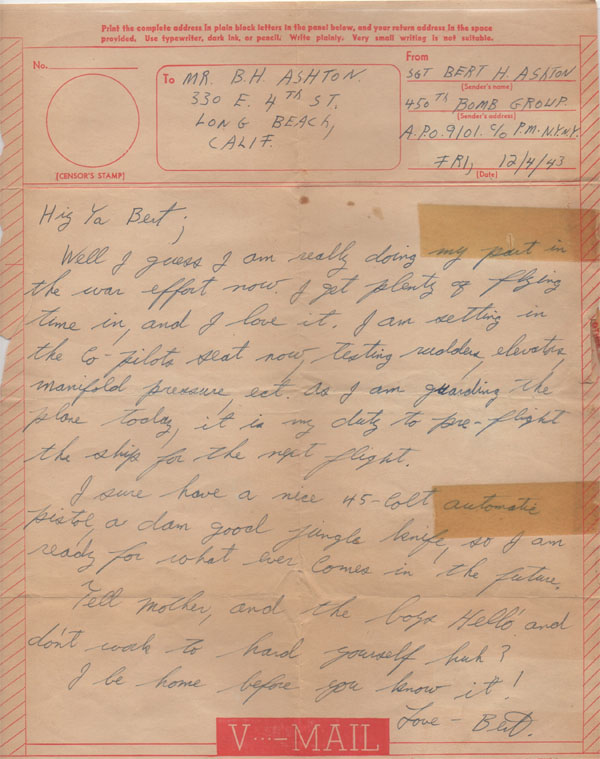 Print the complete address in plain block letters in the panel below, and your return address in the space
provided. Use typewriter, dark ink, or pencil. Write plainly. Very small writing is not suitable.
No.
[CENSOR'S STAMP]
To MR. B.H. ASHTON.
330 E. 4TH ST.
LONG BEACH,
CALIF.
From
SGT BERT H. ASHTON
(Sender's name)
450TH BOMB GROUP.
(Sender's address)
A.P.O. 9101. c/o P.M. N.Y. N.Y.
FRI, 12/4/43
(Date)
Hiz Ya Bert;
Well I guess I am really doing my part in
the war effort now. I get plenty of flying
time in, and I love it. I am setting in
the Co-pilots seat now, testing rudders, elevators,
manifold pressure, ect. As I am guarding the
plane today, it is my duty to pre-flight
the ship for the next flight.
I sure have a nice 45-Colt automatic
pistol, a dam good jungle knife, so I am
ready for what ever comes in the future.
Tell mother, and the boys Hello and
don't work to hard yourself huh?
I be home before you know it!
Love - Bert.
V···—MAIL